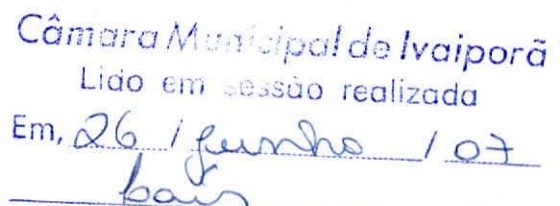 Câmara Municipal de Ivaiporã
Lido em sessão realizada
Em, 26 / junho / 07